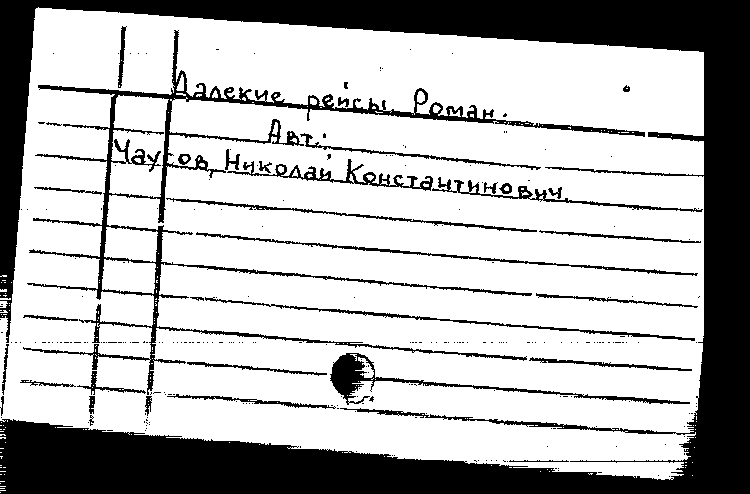 Далекие рейсы. Роман.
Авт.:
Чаусов, Николай Константинович.